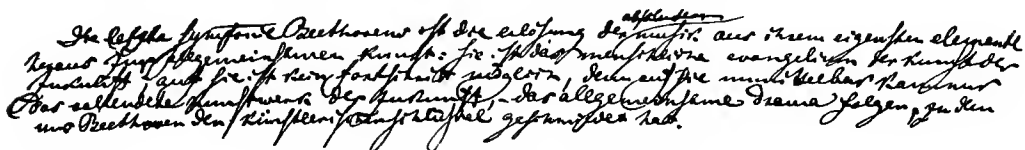 Die letzte symfonie Beethovens ist die erlösung der musik aus ihrem eigensten elemente
heraus zur allgemeinsamen kunst: sie ist das menschliche evangelium der kunst der
zukunft auf sie ist kein fortschritt möglich, denn auf sie unmittelbar kann nur
das vollendete kunstwerk der zukunft, – das allgemeinsame drama folgen, zu dem
uns Beethoven den künstlerischen schlüssel geschmiedet hat.